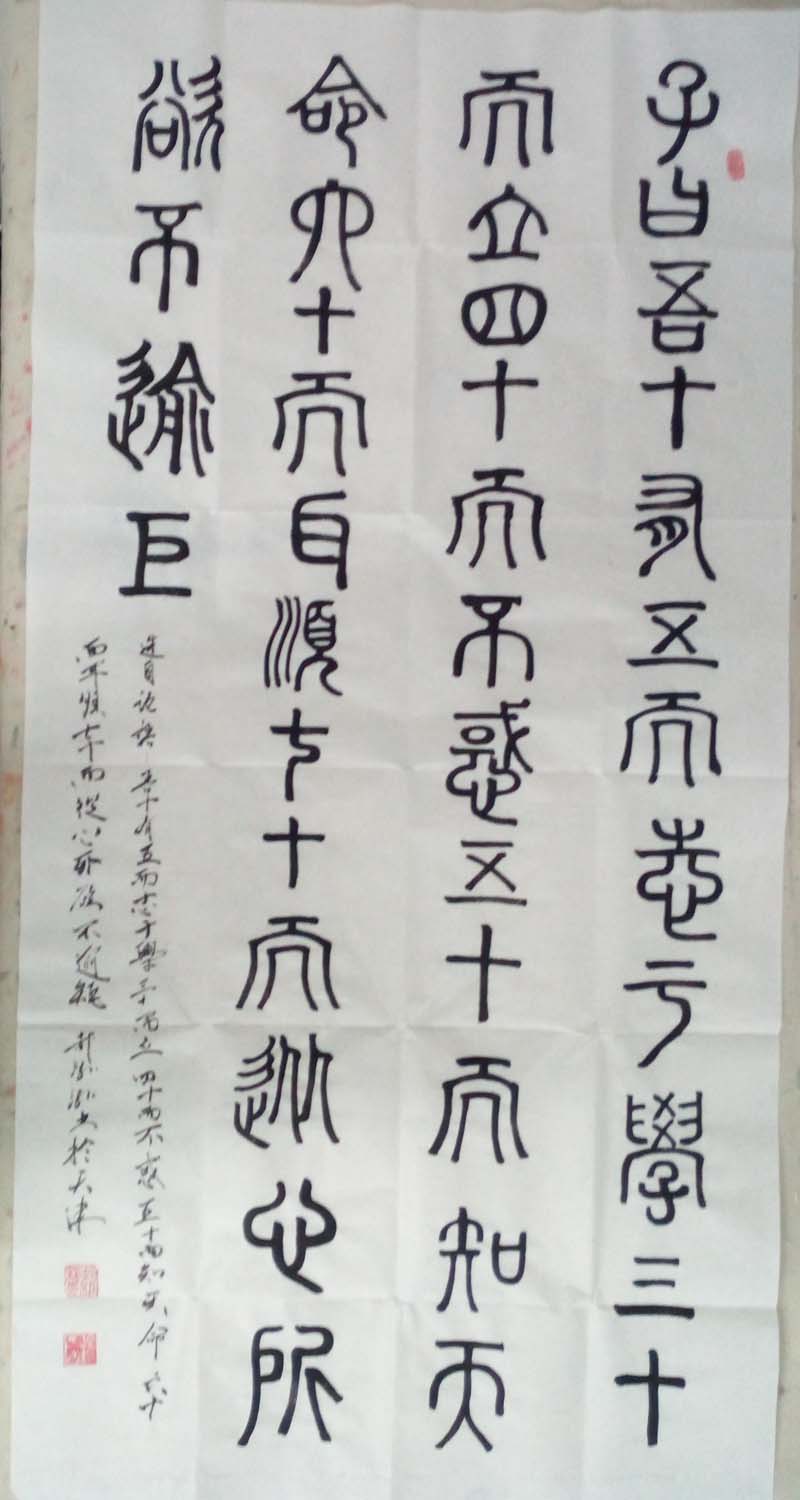 子曰吾十有五而志于學三十
而立四十而不惑五十而知天
命六十而耳順七十而從心所
欲不逾巨
自論語吾十有五而志于學三十而立四十而不惑五十而知天命六十
而耳順七十而從心所欲不逾矩 書於天津